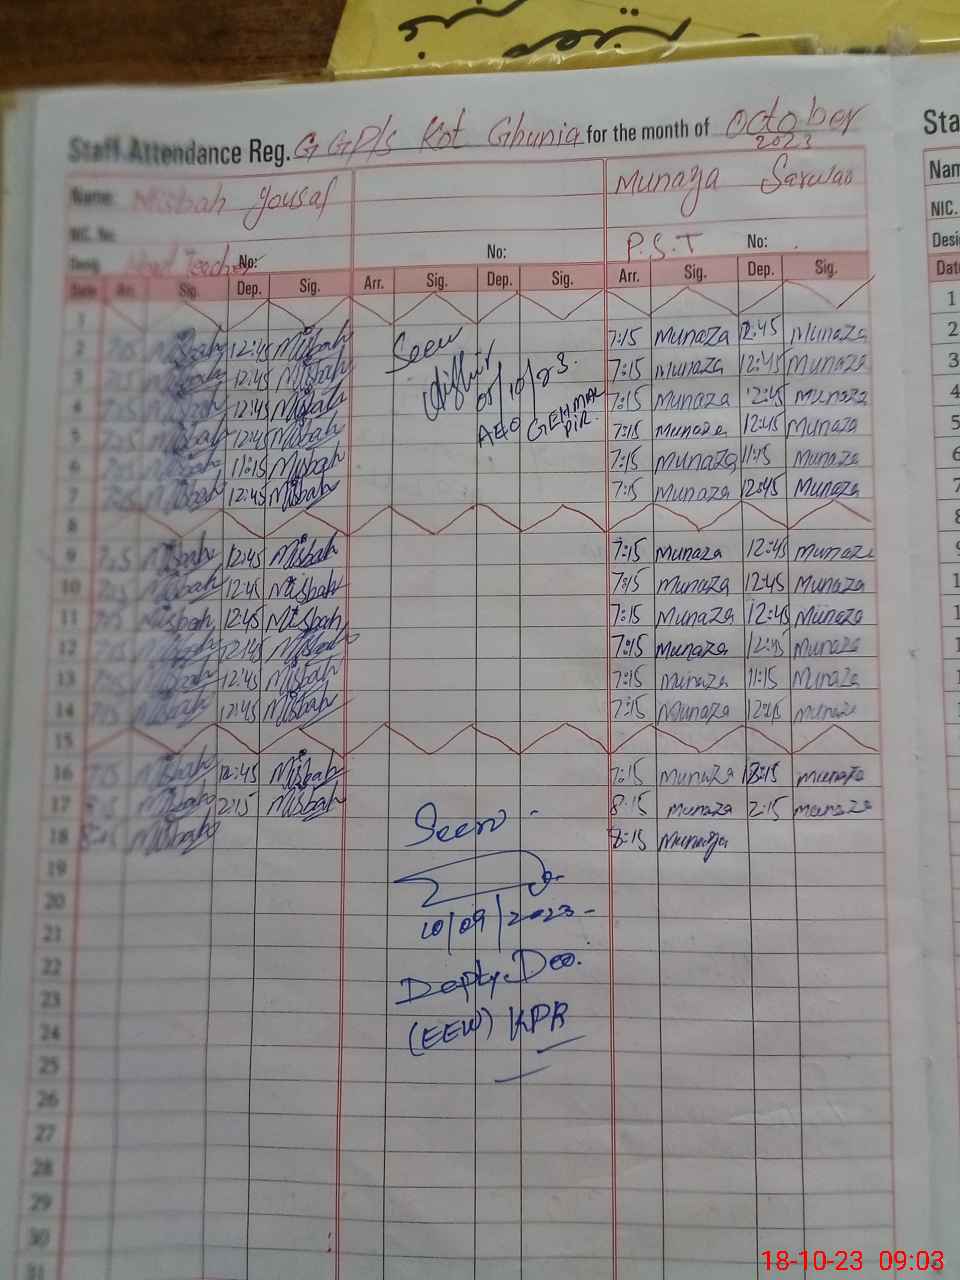 Staff Attendance Reg. GGP/s Kot Ghunia for the month of October
2023
Name: Misbah yousaf Munaza Sarwar
NIC. No
Desig. Head Teacher No: No: P.S.T No:
Date Arr. Sig. Dep. Sig. Arr. Sig. Dep. Sig. Arr. Sig. Dep. Sig.
1
2 Misbah 12:45 Misbah 7:15 Munaza 12:45 Munaza
3 Misbah 12:45 Misbah 7:15 Munaza 12:45 Munaza
4 Misbah 12:45 Misbah 7:15 Munaza 12:45 Munaza
5 Misbah 12:45 Misbah 7:15 Munaza 12:45 Munaza
6 Misbah 11:15 Misbah 7:15 Munaza 11:15 Munaza
7 Misbah 12:45 Misbah 7:15 Munaza 12:45 Munaza
Seen
05/10/23.
AEO GEHMAL
PIR.
8
9 Misbah 12:45 Misbah 7:15 Munaza 12:45 Munaza
10 Misbah 12:45 Misbah 7:15 Munaza 12:45 Munaza
11 Misbah 12:45 Misbah 7:15 Munaza 12:45 Munaza
12 Misbah 12:45 Misbah 7:15 Munaza 12:45 Munaza
13 Misbah 12:45 Misbah 7:15 Munaza 11:15 Munaza
14 Misbah 12:45 Misbah 7:15 Munaza 12:45 Munaza
15
16 Misbah 12:45 Misbah 7:15 Munaza Munaza
17 Misbah 2:15 Misbah 8:15 Munaza 2:15 Munaza
18 8:15 Misbah 8:15 Munaza
19
20
21
22
23
24
25
26
27
28
29
30
31
Seen -
10/09/2023-
Depty. Deo.
(EEW) KPR
Sta
Nam
NIC.
Desi
Date
1
2
3
4
5
6
7
8
9
18-10-23 09:03